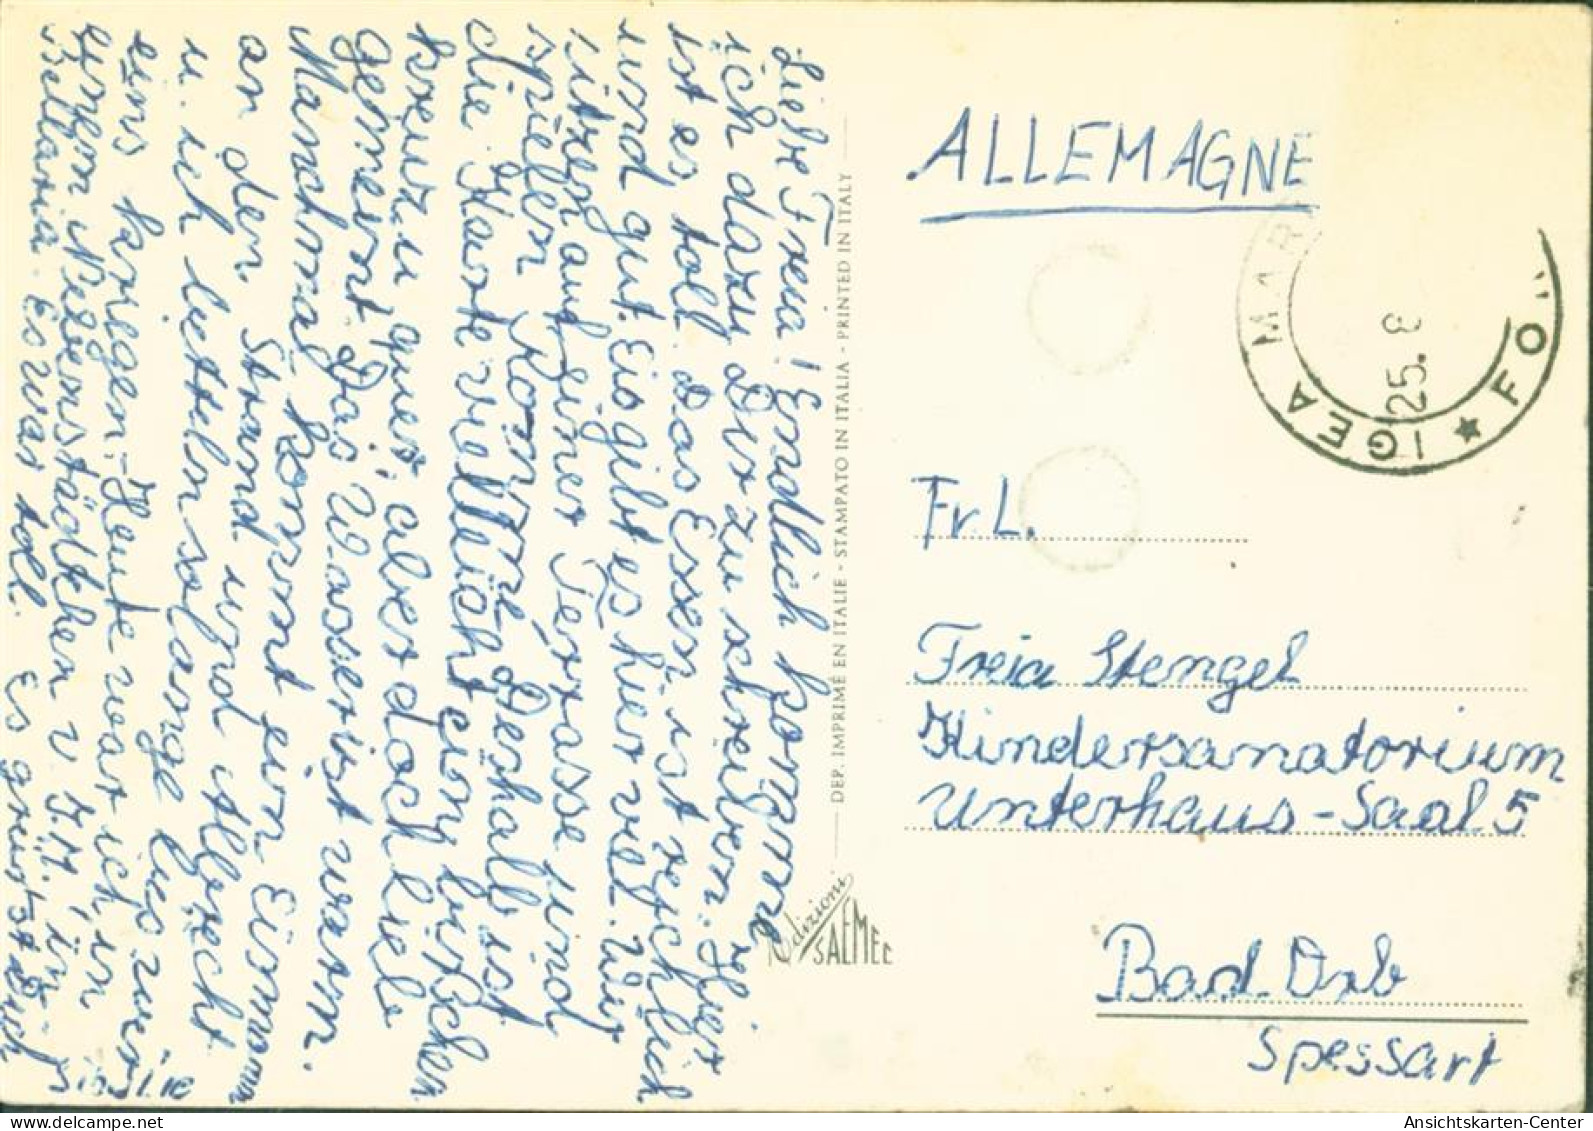 Liebe Freia! Endlich komme
ich dazu Dir zu schreiben. Hier
ist es toll. Das Essen ist reichlich
und gut. Eis gibt es hier viel. Wir
sitzen auf einer Terrasse und
spielen Romme. Deshalb ist
die Karte vielleicht ein bißchen
kreuz u quer, aber doch liebe
gemeint. Das Wasser ist warm.
Manchmal kommt ein Eismann
an den Strand und Albrecht
u. ich betteln solange bis wir
eins kriegen. Heute war ich in
einem Nebenstädtchen v I.M. in
Bellaria. Es war toll. Es grüßt dich
DEP. IMPRIMÉ EN ITALIE - STAMPATO IN ITALIA - PRINTED IN ITALY
Edizioni
SAEMEC
ALLEMAGNE
IGEA MAR
25. 8
★ FO
Frl.
Freia Stengel
Kindersanatorium
Unterhaus - Saal 5
Bad Orb
Spessart
Ansichtskarten-Center